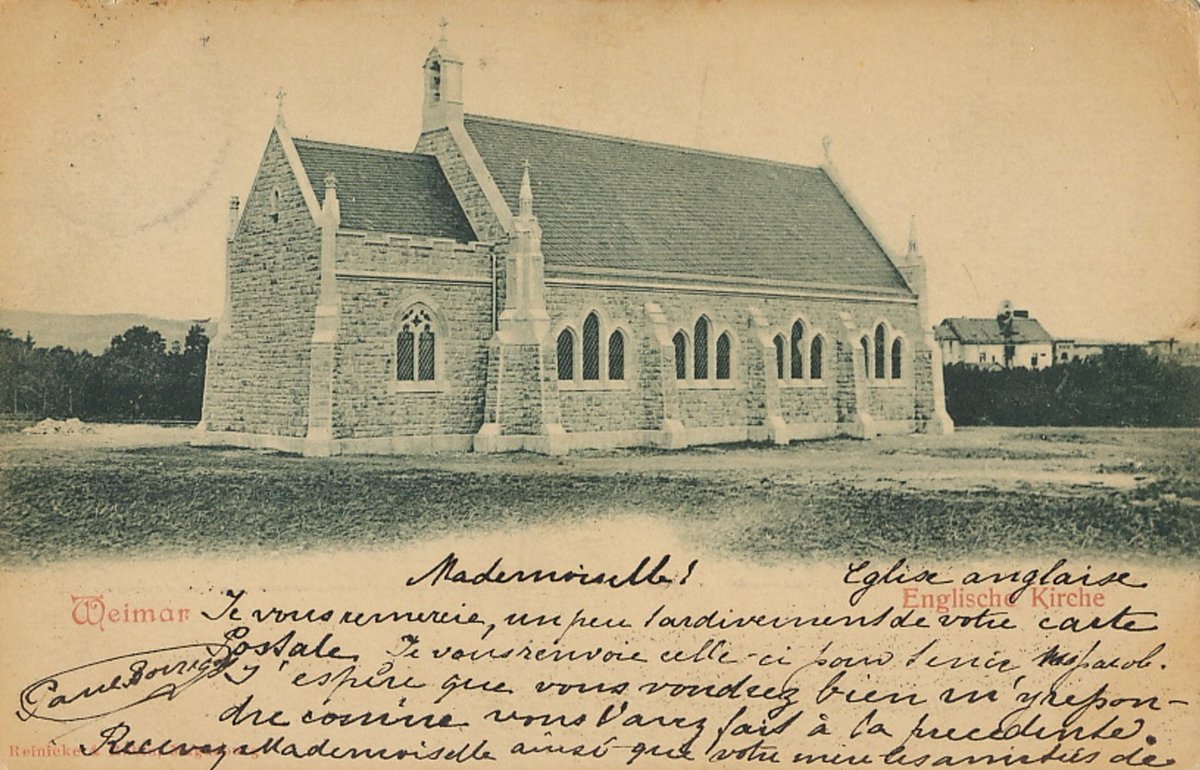 Mademoiselle!
Eglise anglaise
Weimar
Englische Kirche
Je vous remercie, un peu tardivement de votre carte
Postale. Je vous renvoie celle-ci pour tenir
J'espère que vous voudrez bien m'y repon-
dre comme vous l'avez fait à la precedente.
Recevez Mademoiselle ainsi que votre mère les amitiés de
Paul
Reinicke &